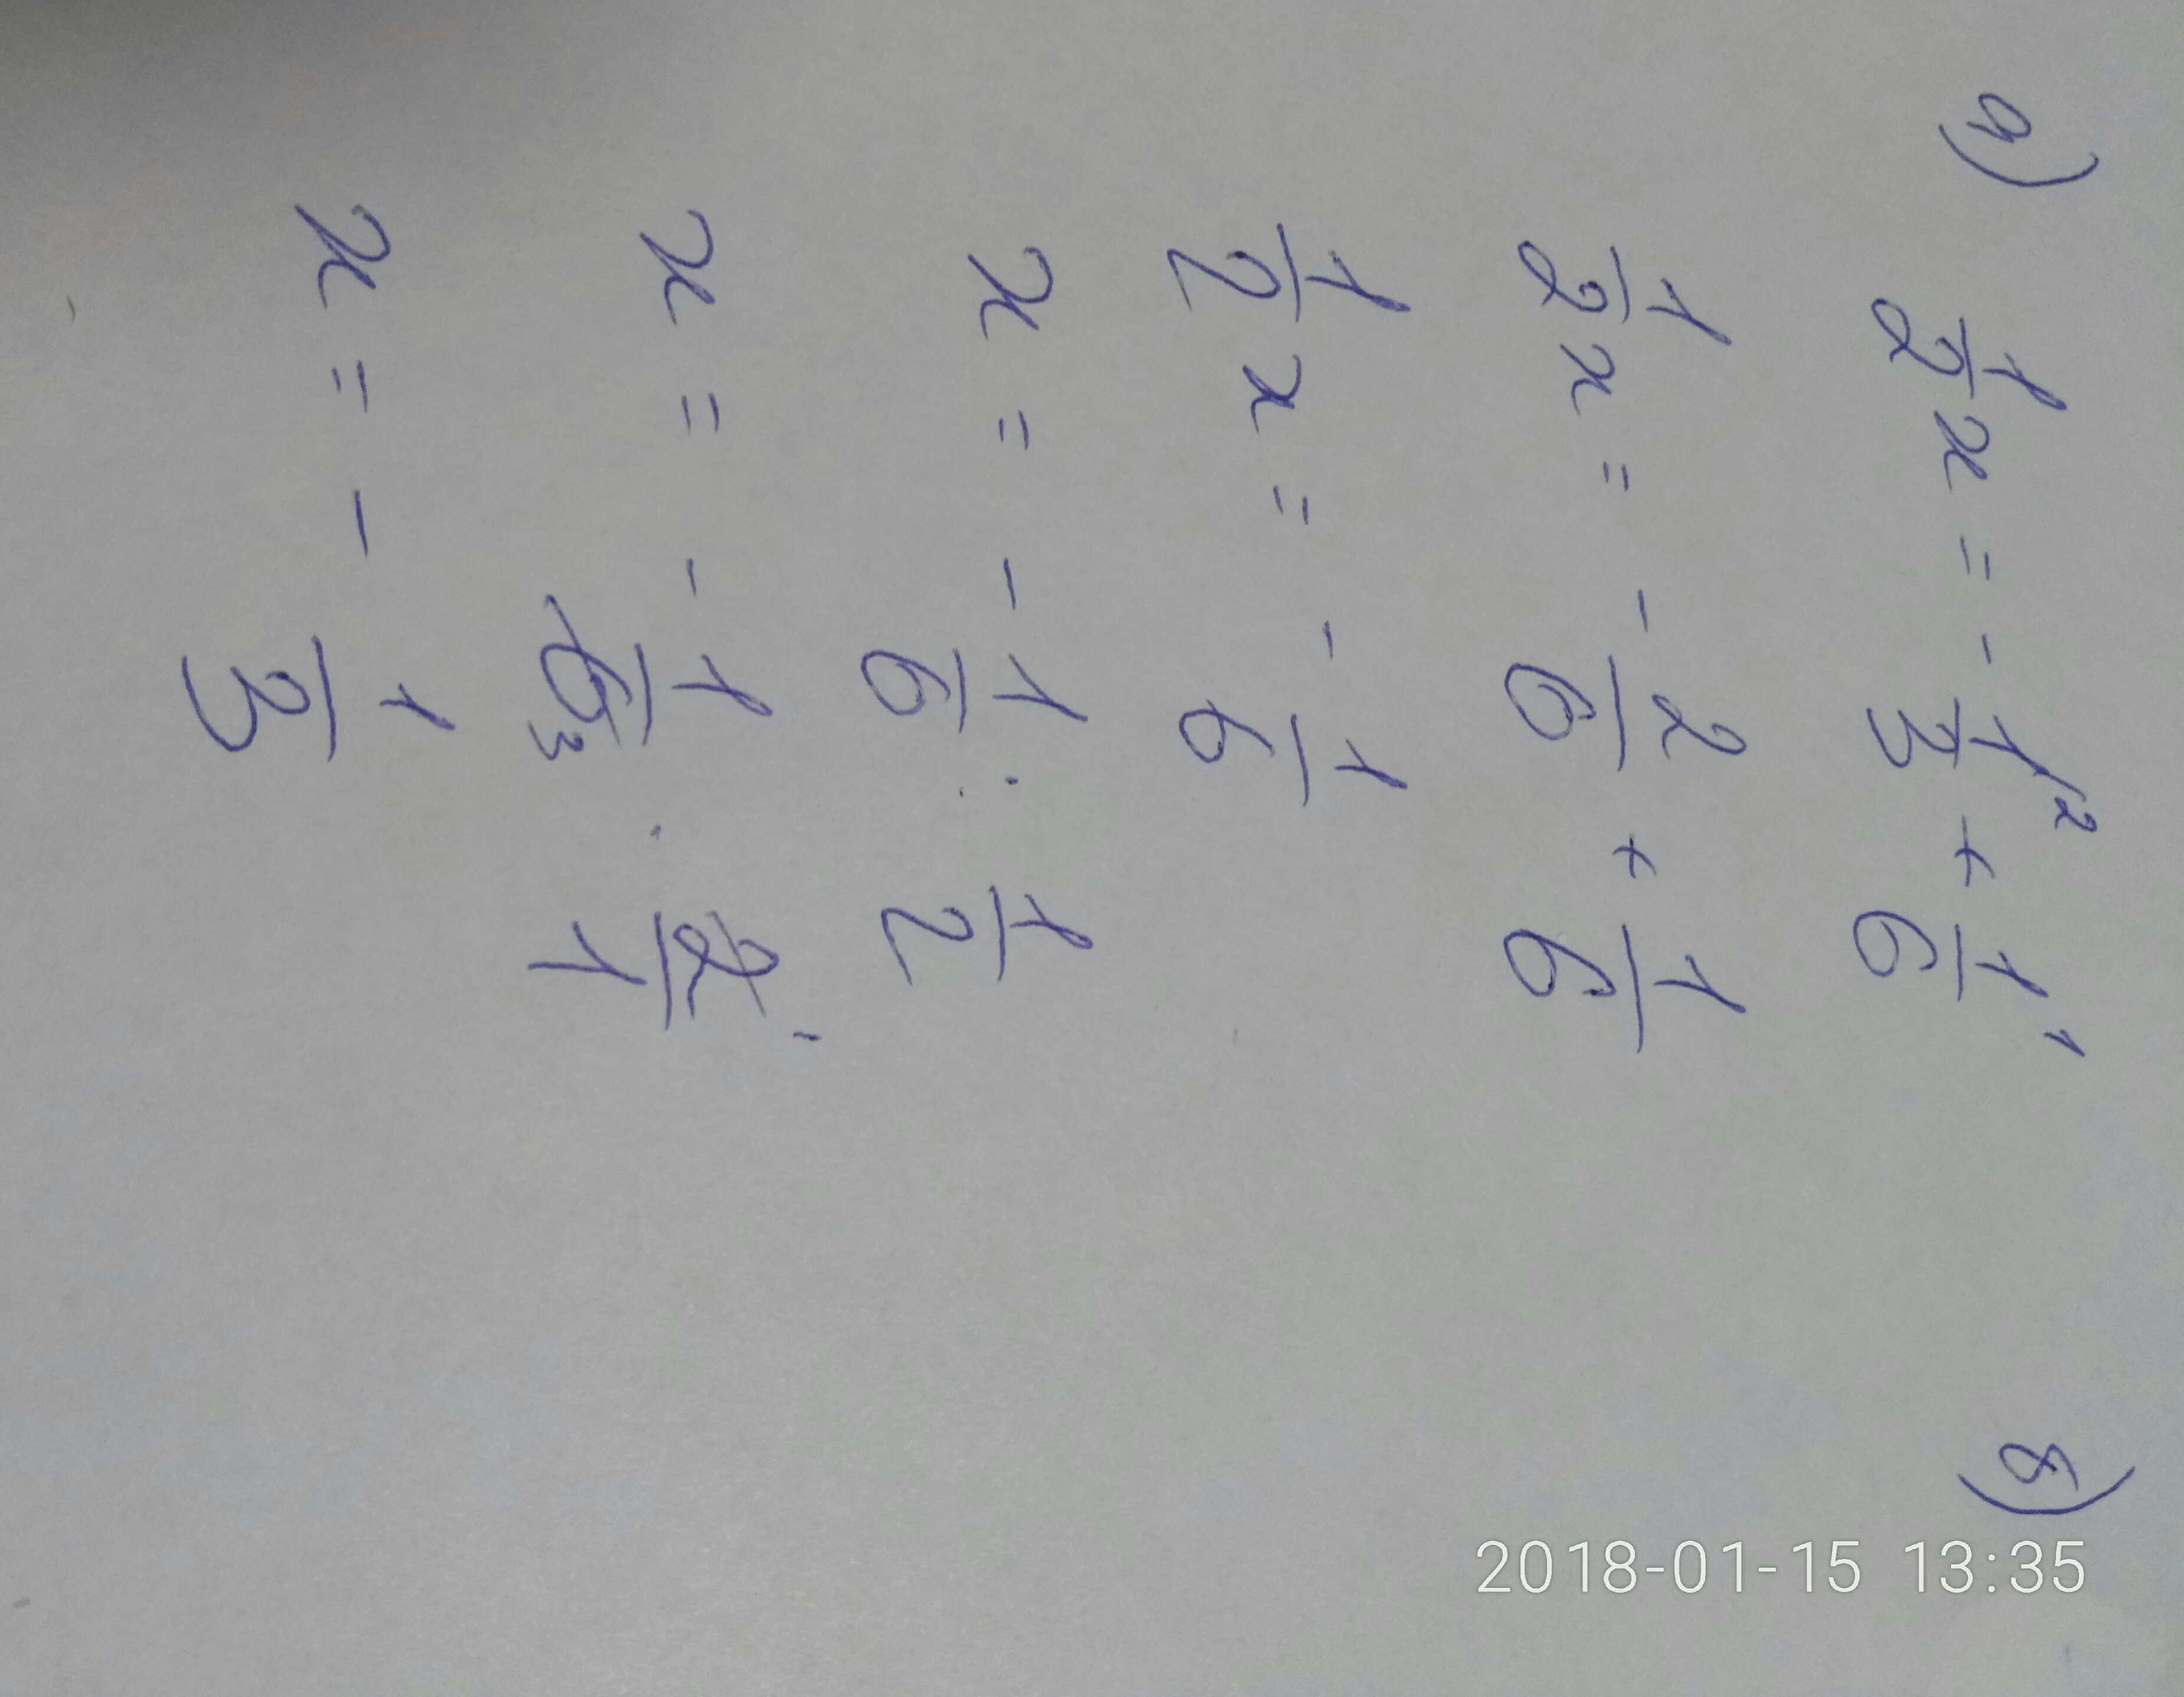 а) 1/2 x = - 1/3 ² + 1/6 ¹ в)
1/2 x = - 2/6 + 1/6
1/2 x = - 1/6
x = - 1/6 : 1/2
x = - 1/6 3 · 2/1
x = - 1/3
2018-01-15 13:35